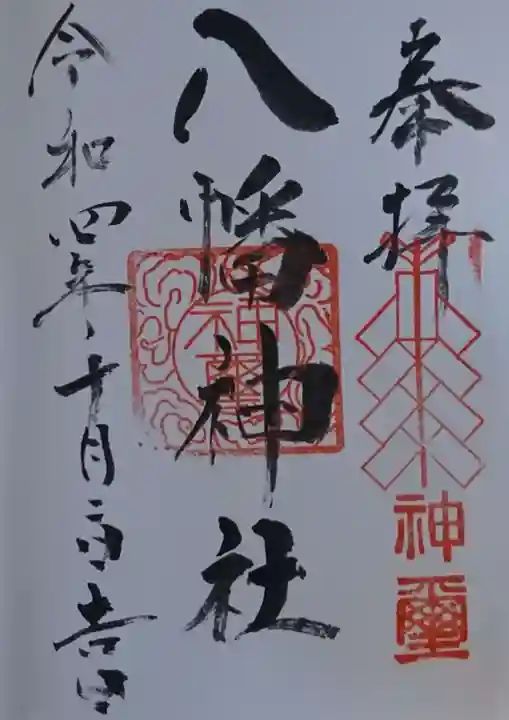 奉拝
神璽
八幡神社
神璽
令和四年十月二百吉日